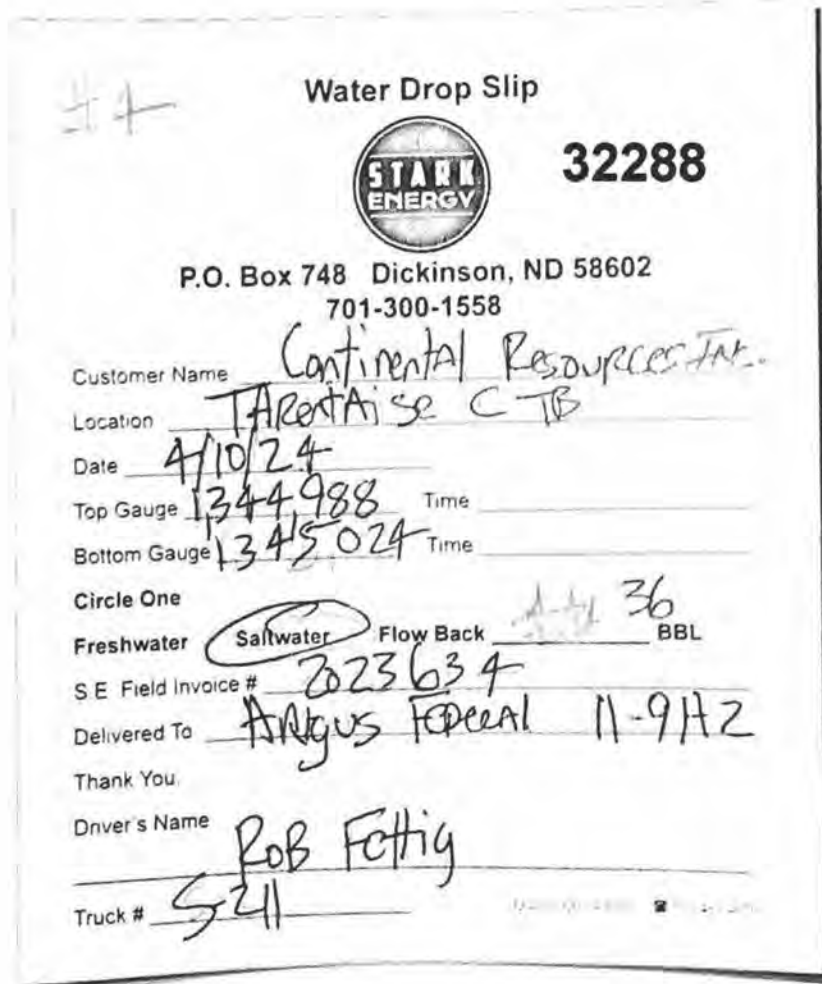 #4
Water Drop Slip
STARK
ENERGY
32288
P.O. Box 748 Dickinson, ND 58602
701-300-1558
Customer Name Continental Resources Inc.
Location TARentAise CTB
Date 4/10/24
Top Gauge 1,344,988 Time
Bottom Gauge 1,345,024 Time
Circle One
Freshwater Saltwater Flow Back 36 BBL
S.E. Field Invoice # 2023634
Delivered To ARgus FEDERAl 11-9H2
Thank You,
Driver's Name RoB Fettig
Truck # S-211